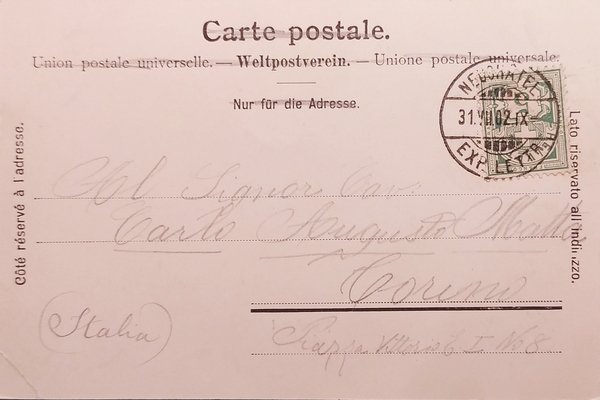 Carte postale.
Union postale universelle. — Weltpostverein. — Unione postale universale.
Nur für die Adresse.
NEUCHÂTEL
31.VII.02.IX–
EXP. LETTR.
5
Côté réservé à l'adresse.
Lato riservato all'indirizzo.
Al Signor Cav:
Carlo Augusto Matt
Torino
(Italia)
Piazza Vittorio E I No 8